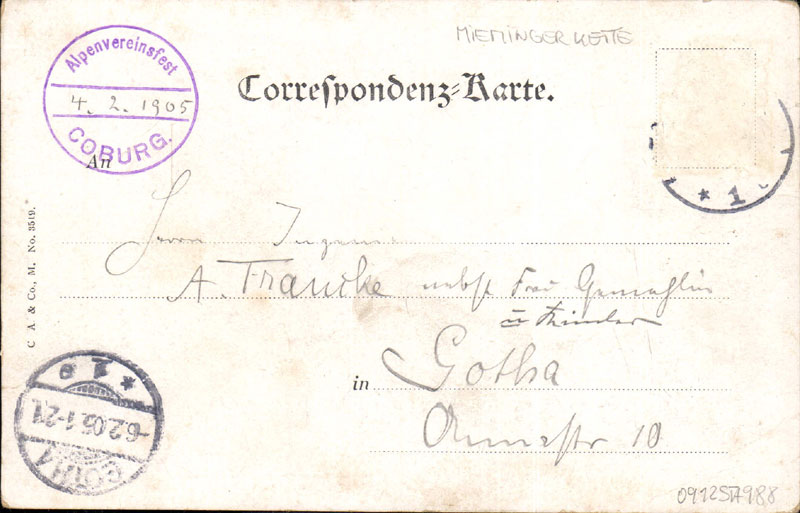 MIEMINGER KETTE
Alpenvereinsfest
4. 2. 1905
COBURG.
Correſpondenz-Karte.
An
Herrn Ingen.
A. Francke nebst Frau Gemahlin
u Kinder
in Gotha
Annastr 10
C A. & Co., M. No. 3519.
* 1 e
-6.2.05.1-2N.
GOTHA 1
* 1
0912517988